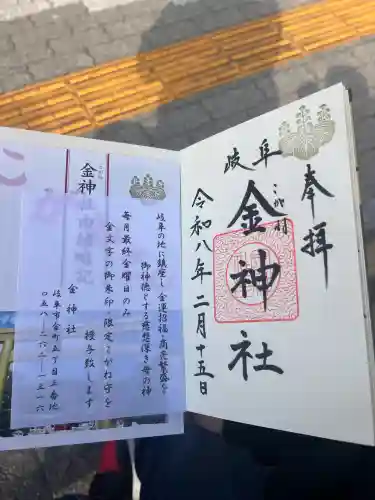 奉拝
岐阜
こがね
金神社
令和八年二月十五日
金神
岐阜の地に鎮座し 金運招福・商売繁盛を
御神徳とする慈悲深き母の神
毎月最終金曜日のみ
金文字の御朱印・限定こがね守を
授与致します
金神社
岐阜市金町五丁目三番地
〇五八-二六二-一三一六